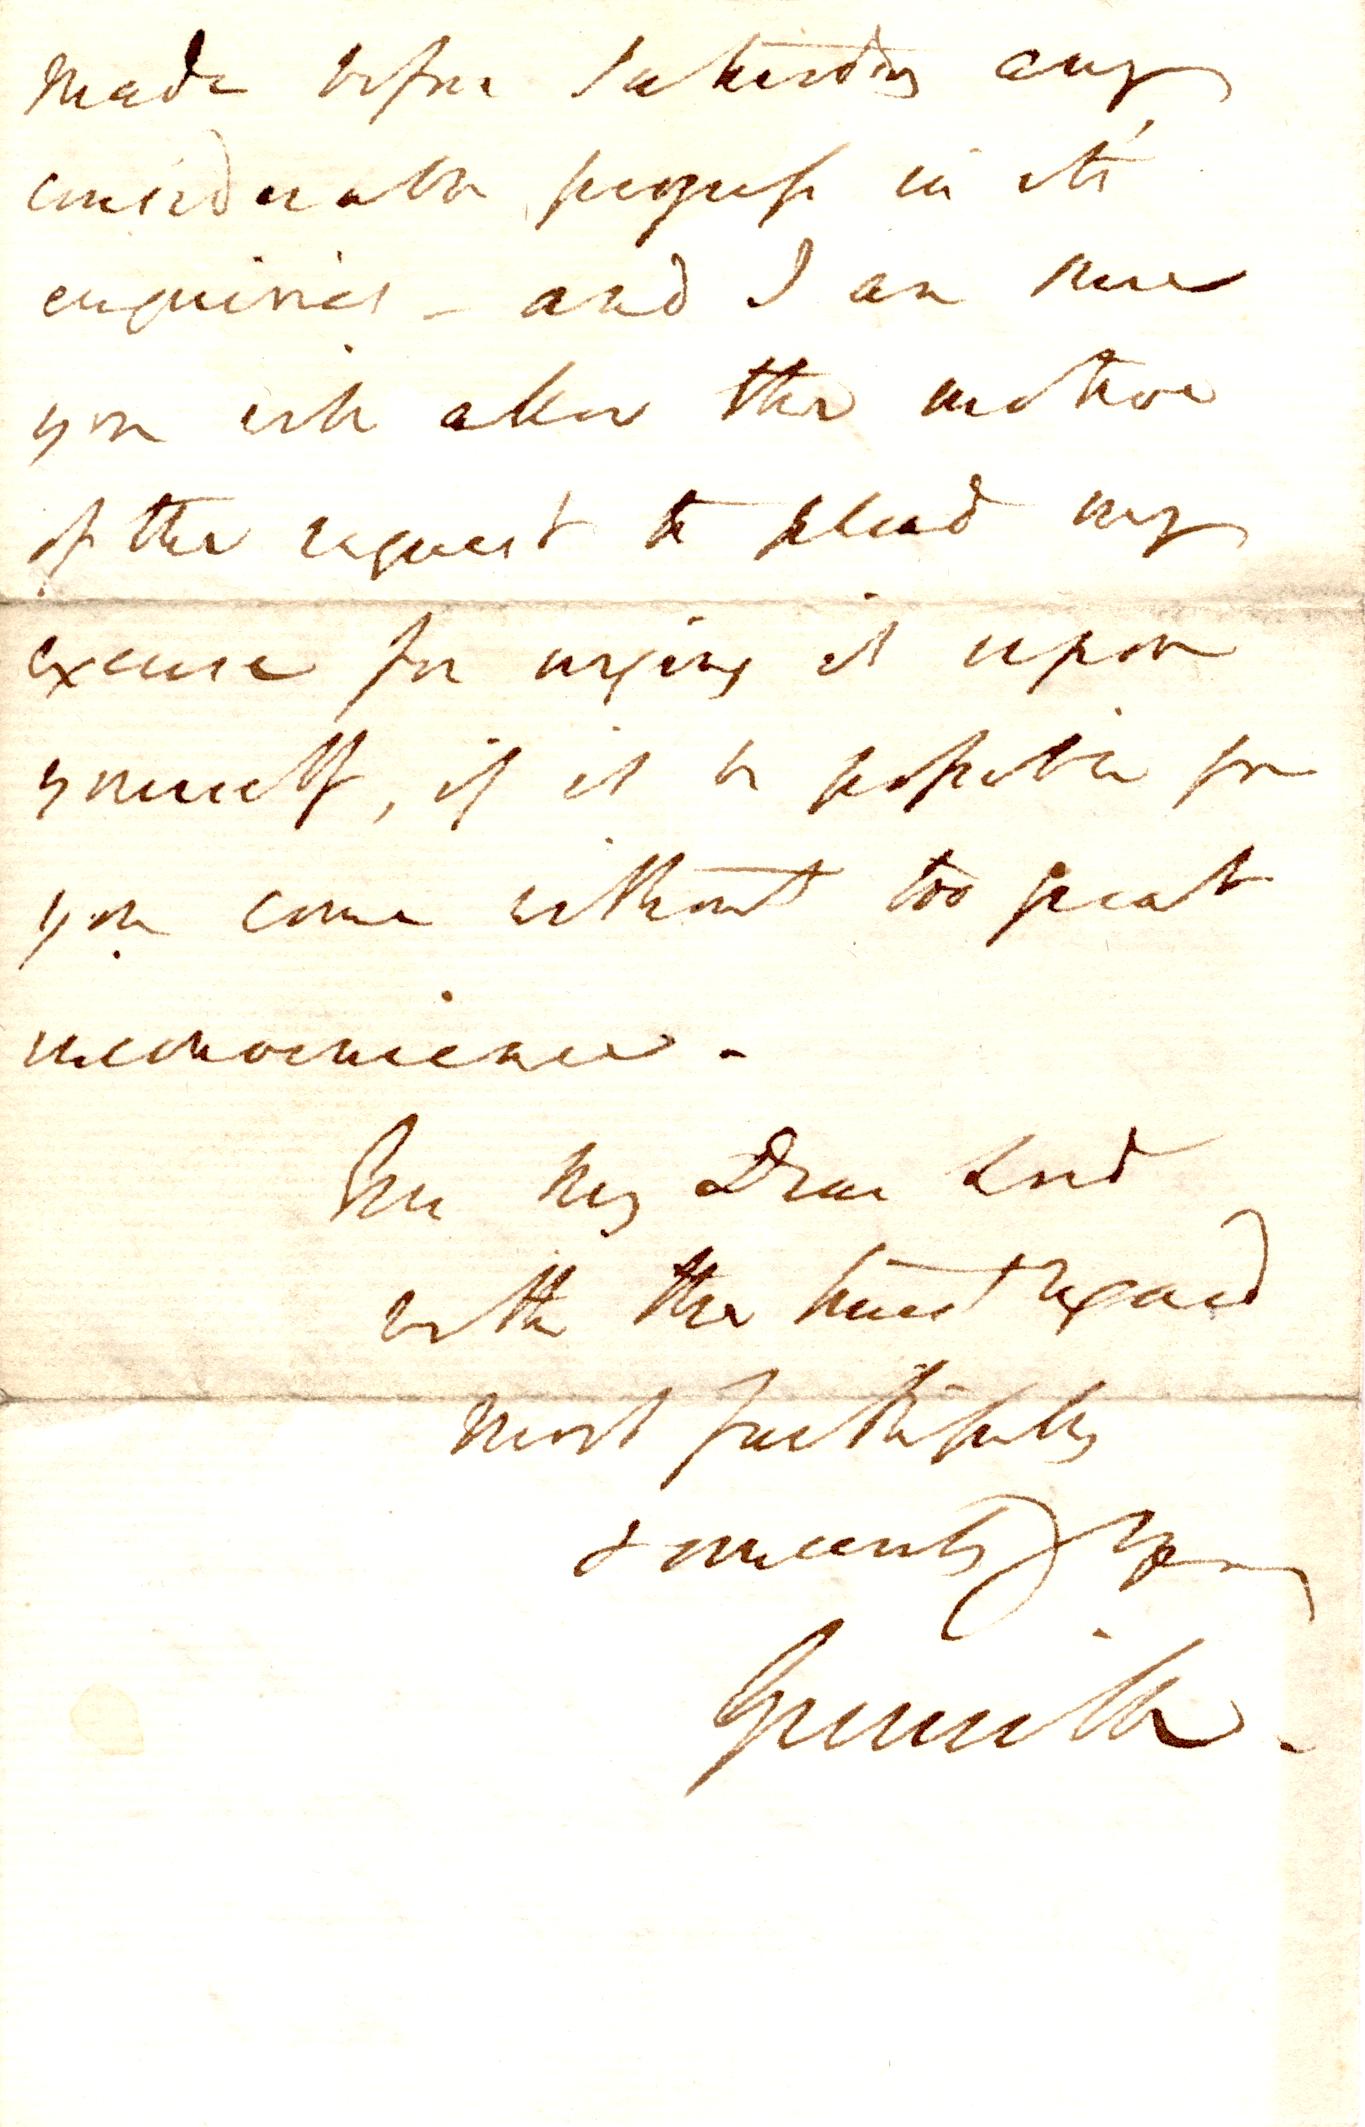 made before Saturday any
considerable progress in it's
enquiries - and I am sure
you will allow the motive
of the request to plead my
excuse for urging it upon
yourself, if it be possible for
you come without too great
inconvenience -
My Dear Lord
with the truest regard
most faithfully
& sincerely Yrs
Grenville -